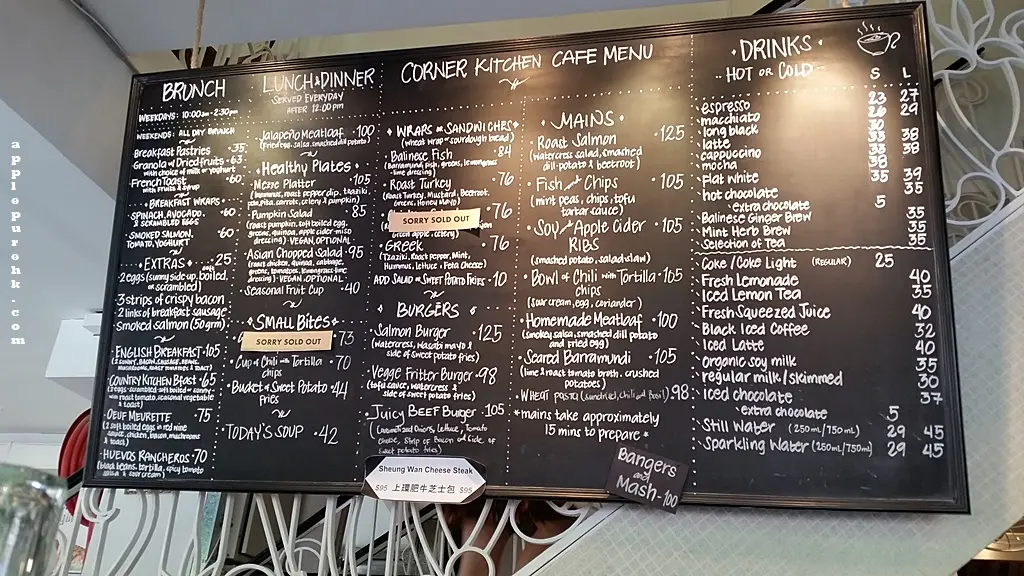 applepurehk.com
CORNER KITCHEN CAFE MENU
BRUNCH
WEEKDAYS: 10:00am-2:30pm
WEEKENDS: ALL DAY BRUNCH
Breakfast Pastries .35
Granola w Dried fruits .63
with choice of milk or yoghurt
French Toast .60
with fruits & syrup
• BREAKFAST WRAPS •
SPINACH, AVOCADO, & SCRAMBLED EGGS .60
• SMOKED SALMON, TOMATO, YOGHURT 60
• EXTRAS • 25
2 eggs (sunny side up, boiled, or scrambled)
3 strips of crispy bacon
2 links of breakfast sausage
Smoked salmon (50grm)
ENGLISH BREAKFAST .105
COUNTRY KITCHEN Bfast .65
OEUF MEURETTE .75
(2 soft boiled eggs in red wine sauce, chicken, bacon, mushrooms & toast)
HUEVOS RANCHEROS 70
(black beans, tortilla, spicy tomato salsa & sour cream)
LUNCH & DINNER
SERVED EVERYDAY
AFTER 12:00pm
Jalapeño Meatloaf .100
(fried egg, salsa, smashed dill potato)
• Healthy Plates •
Mezze Platter .105
(hummus, roast pepper dip, tzaziki, pita, carrots, celery & pumpkin)
Pumpkin Salad 85
(roast pumpkin, soft boiled egg, greens, quinoa, apple cider miso dressing) • VEGAN OPTIONAL
Asian Chopped Salad .95
(roast chicken, quinoa, cabbage, greens, tomatoes, lemongrass lime dressing) • VEGAN OPTIONAL
Seasonal Fruit Cup .40
• SMALL Bites •
SORRY SOLD OUT
73
Cup of Chili with Tortilla chips .70
Bucket of Sweet Potato fries .44
TODAY'S SOUP .42
• WRAPS or SANDWICHES •
(wheat wrap or sourdough bread)
Balinese Fish .84
(barramundi fish, greens, lemongrass lime dressing)
Roast Turkey .76
(Roast Turkey, Mustard, Beetroot, Greens, Honey Mayo)
SORRY SOLD OUT
.76
green apple, celery)
GREEK .76
(Tzaziki, Roast pepper, Mint, Hummus, lettuce & Feta Cheese)
ADD SALAD or SWEET POTATO FRIES .10
BURGERS
Salmon Burger .125
(Watercress, Wasabi mayo & side of sweet potato fries)
Vegge Fritter Burger .98
(tofu sauce, watercress & side of sweet potato fries)
Juicy BEEF Burger .105
Sheung Wan Cheese Steak
$95 上環肥牛芝士包 $95
• MAINS •
Roast Salmon .125
(watercress salad, smashed dill potato & beetroot)
Fish and Chips .105
(mint peas, chips, tofu tartar sauce)
Soy and Apple Cider RIBS .105
(smashed potato, salad slaw)
Bowl of Chili with Tortilla chips .105
(sour cream, egg, coriander)
Homemade Meatloaf .100
(smokey salsa, smashed dill potato and fried egg)
Seared Barramundi .105
(lime & roast tomato broth, crushed potatoes)
WHEAT pasta (sundried, chili and basil) 98
*mains take approximately
15 mins to prepare*
Bangers
and
Mash -100
• DRINKS •
HOT or COLD
S L
espresso 23 27
macchiato 29
long black
latte 38
cappuccino 38
mocha
flat white 35 39
hot chocolate 35
extra chocolate 5
Balinese Ginger Brew 35
Mint Herb Brew 35
Selection of Tea 35
Coke / Coke Light (REGULAR) 25
Fresh Lemonade 40
Iced Lemon Tea 35
Fresh Squeezed Juice 40
Black Iced Coffee 32
Iced Latte 40
organic soy milk 35
regular milk / skimmed 30
Iced chocolate 37
extra chocolate 5
Still Water (250ml/750ml) 29 45
Sparkling Water (250ml/750ml) 29 45